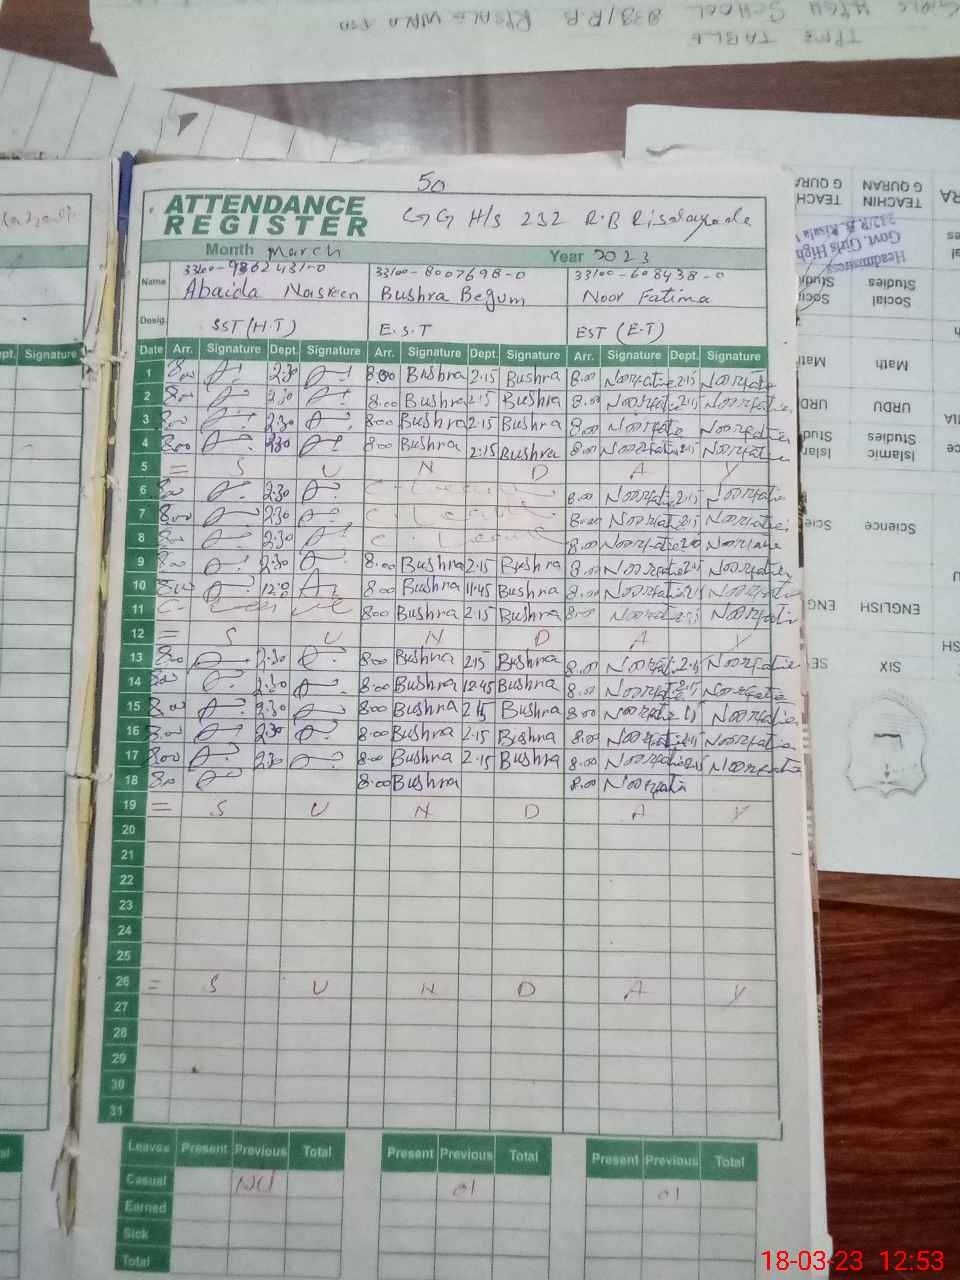 TIME TABLE
GIRLS HIGH SCHOOL 233/R.B
50
ATTENDANCE REGISTER
GG H/S 232 R.B Risalaywala
Month March Year 2023
Name 33100-9862431-0 33100-8007698-0 33100-608438-0
Abaida Nasreen Bushra Begum Noor Fatima
Desig. SST (H.T) E.S.T EST (E.T)
Date Arr. Signature Dept. Signature Arr. Signature Dept. Signature Arr. Signature Dept. Signature
1 8.00 2.30 8.00 Bushra 2.15 Bushra 8.00 Noorfatia 2.15 Noorfatia
2 8.00 2.30 8.00 Bushra 2.15 Bushra 8.00 Noorfatia 2.15 Noorfatia
3 8.00 2.30 8.00 Bushra 2.15 Bushra 8.00 Noorfatia Noorfatia
4 8.00 2.30 8.00 Bushra 2.15 Bushra 8.00 Noorfatia 2.15 Noorfatia
5 = S U N D A Y
6 8.00 2.30 C-Leave 8.00 Noorfatia 2.15 Noorfatia
7 8.00 2.30 C-Leave 8.00 Noorfatia 2.15 Noorfatia
8 8.00 2.30 C-Leave 8.00 Noorfatia Noorfatia
9 8.00 2.30 8.00 Bushra 2.15 Bushra 8.00 Noorfatia 2.15 Noorfatia
10 8.00 8.00 Bushra 11.45 Bushra 8.00 Noorfatia Noorfatia
11 C-Leave 8.00 Bushra 2.15 Bushra 8.00 Noorfatia Noorfatia
12 = S U N D A Y
13 8.00 2.30 8.00 Bushra 2.15 Bushra 8.00 Noorfatia 2.15 Noorfatia
14 8.00 2.30 8.00 Bushra 12.45 Bushra 8.00 Noorfatia Noorfatia
15 8.00 2.30 8.00 Bushra 2.15 Bushra 8.00 Noorfatia Noorfatia
16 8.00 2.30 8.00 Bushra 2.15 Bushra 8.00 Noorfatia 2.15 Noorfatia
17 8.00 2.30 8.00 Bushra 2.15 Bushra 8.00 Noorfatia 2.15 Noorfatia
18 8.00 8.00 Bushra 8.00 Noorfatia
19 = S U N D A Y
20
21
22
23
24
25
26 = S U N D A Y
27
28
29
30
31
Leaves Present Previous Total Present Previous Total Present Previous Total
Casual Nil 01 01
Earned
Sick
Total
dept. Signature
SIX
ENGLISH ENG
Science Scie
Islamic Studies
URDU URD
Math Mat
Social Studies
TEACHIN G QURAN
Headmistress
Govt. Girls High
232/R.B. Risala
18-03-23 12:53